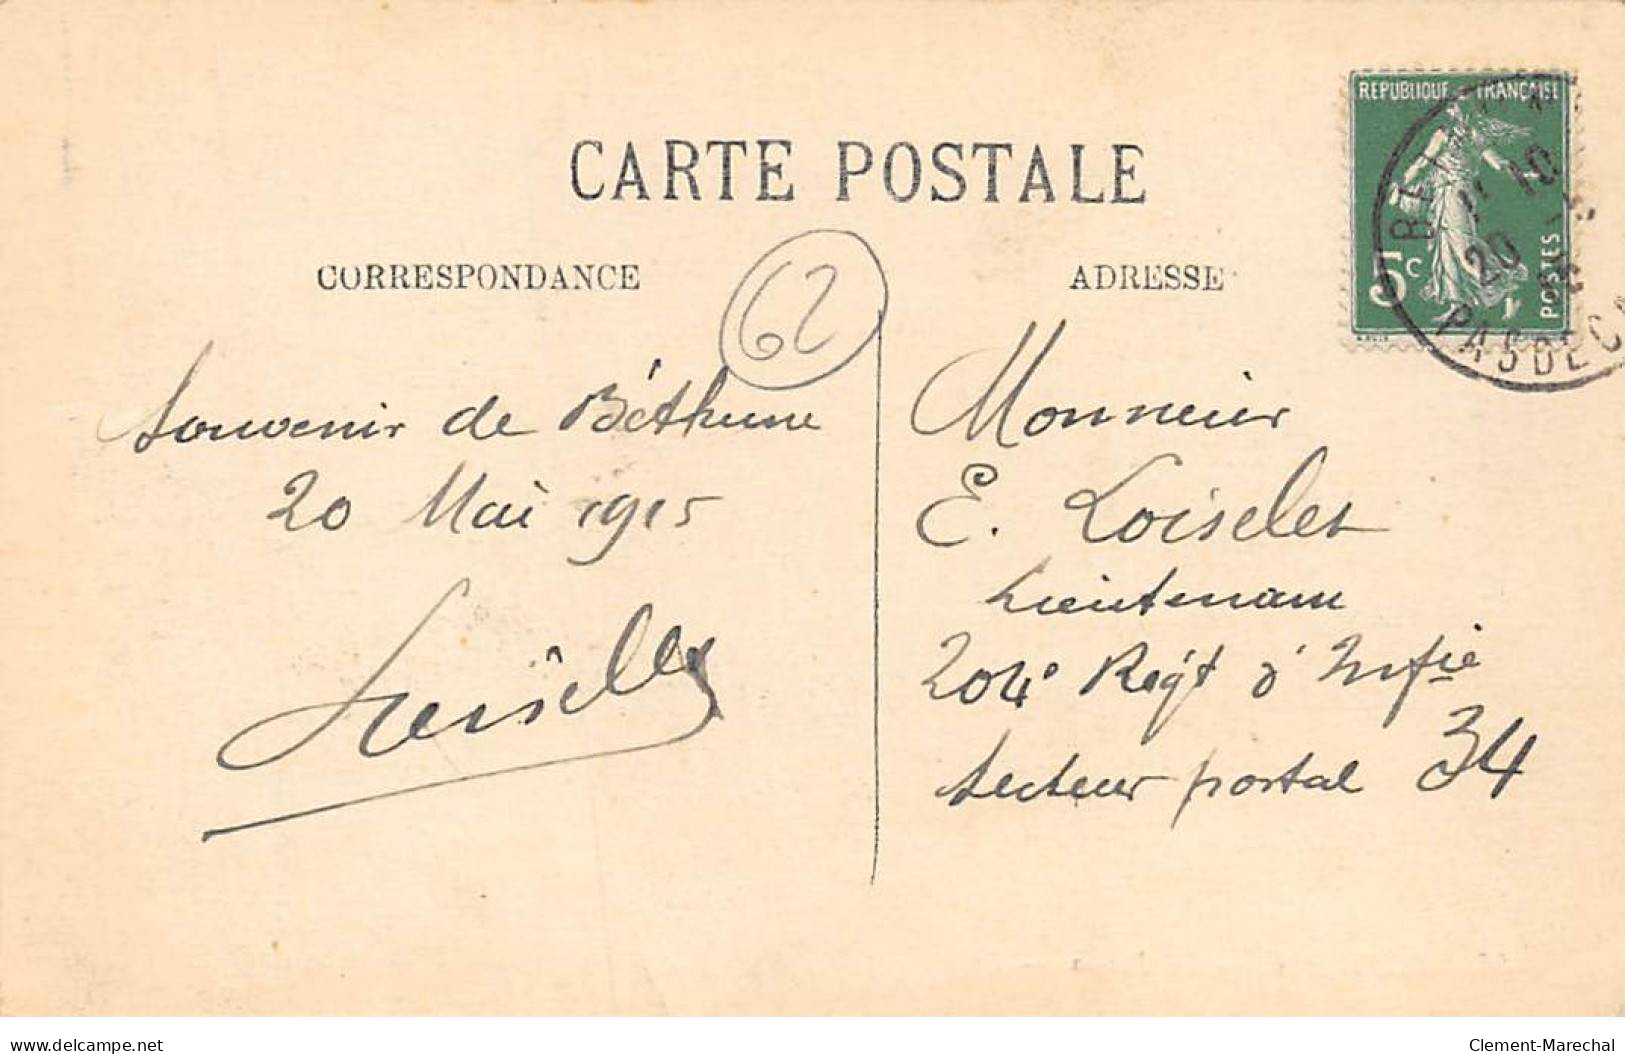 CARTE POSTALE
CORRESPONDANCE
ADRESSE
62
REPUBLIQUE FRANÇAISE
5c
POSTES
10
20
PAS DE C
Souvenir de Béthune
20 Mai 1915
Monsieur
E. Loiselet
Lieutenant
204e Rég't d'Infie
Secteur postal 34
delcampe.net
Clement-Marechal